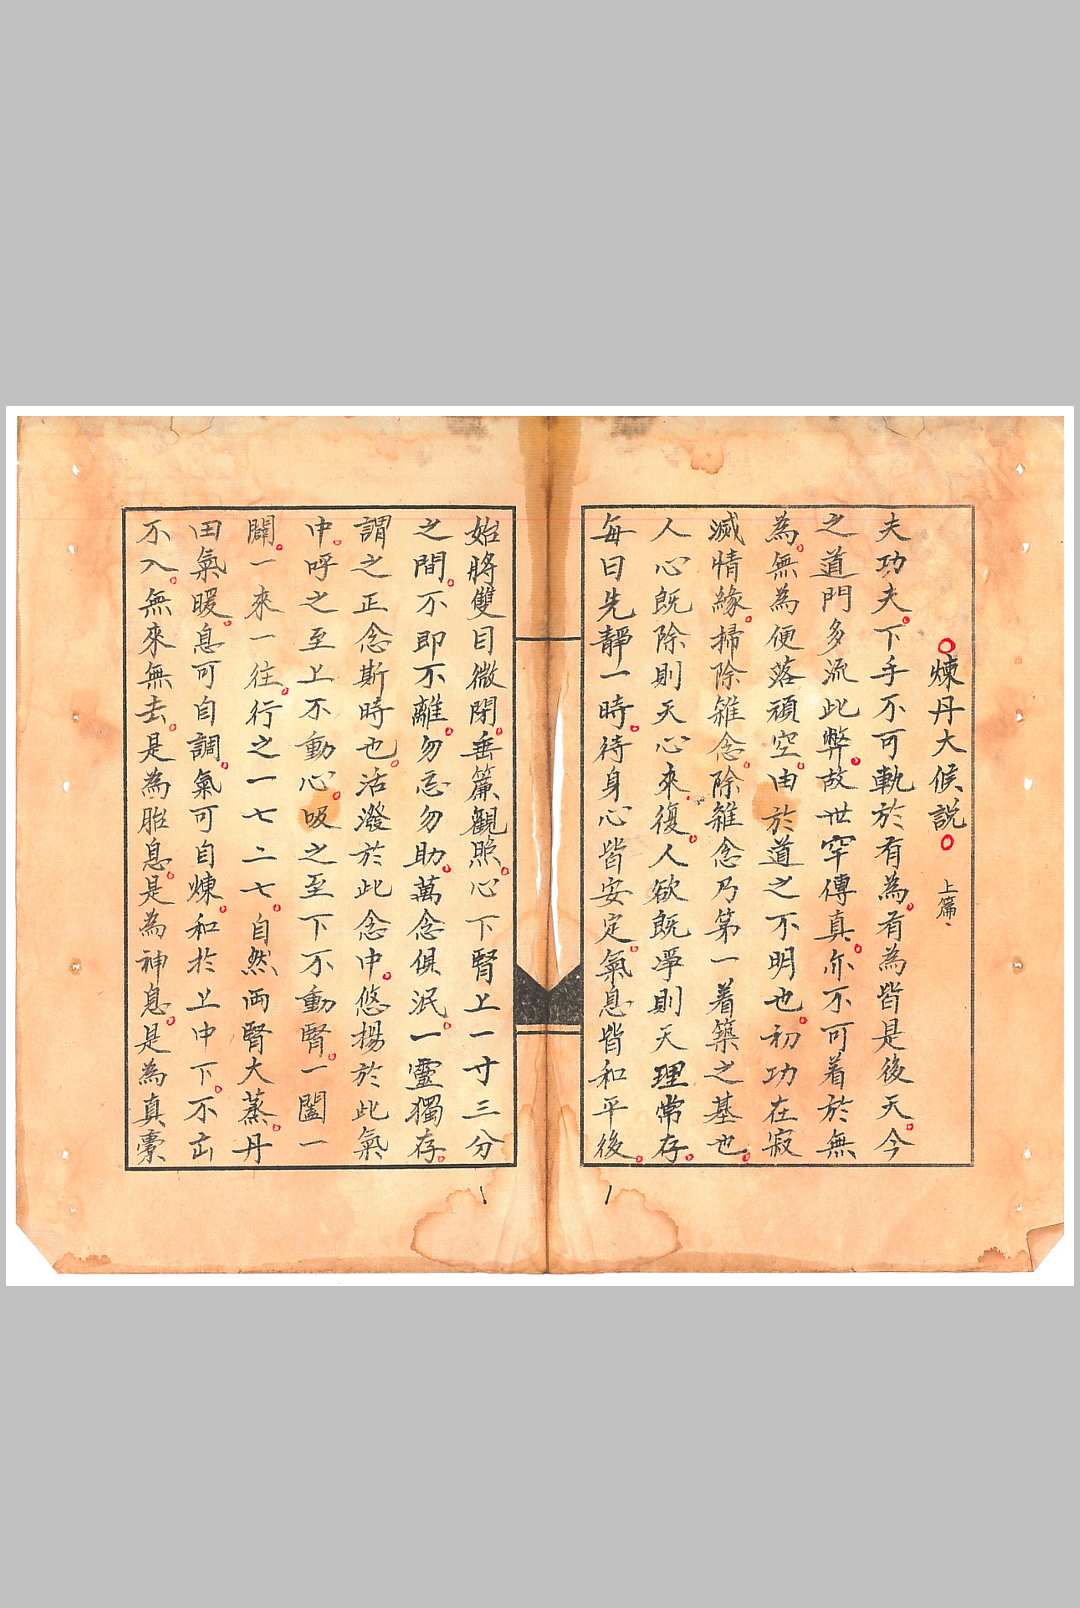 ○煉丹大候説○ 上篇
夫功夫。下手不可執於有為。有為皆是後天。今
之道門多流此弊。故世罕傳真。亦不可着於無
為。無為便落頑空。由於道之不明也。初功在寂
滅情緣。掃除雜念。除雜念乃第一着築之基也。
人心既除則天心來復。人欲既凈則天理常存。
每日先靜一時。待身心皆安定。氣息皆和平後。
始將雙目微閉。垂簾觀照。心下腎上一寸三分
之間。不即不離。勿忘勿助。萬念俱泯。一靈獨存。
謂之正念斯時也。活潑於此念中。悠揚於此氣
中。呼之至上不動心。吸之至下不動腎。一闔一
闢。一來一往。行之一七二七。自然両腎大蒸。丹
田氣暖。息可自調。氣可自煉。和於上中下。不出
不入。無來無去。是為胎息。是為神息。是為真橐